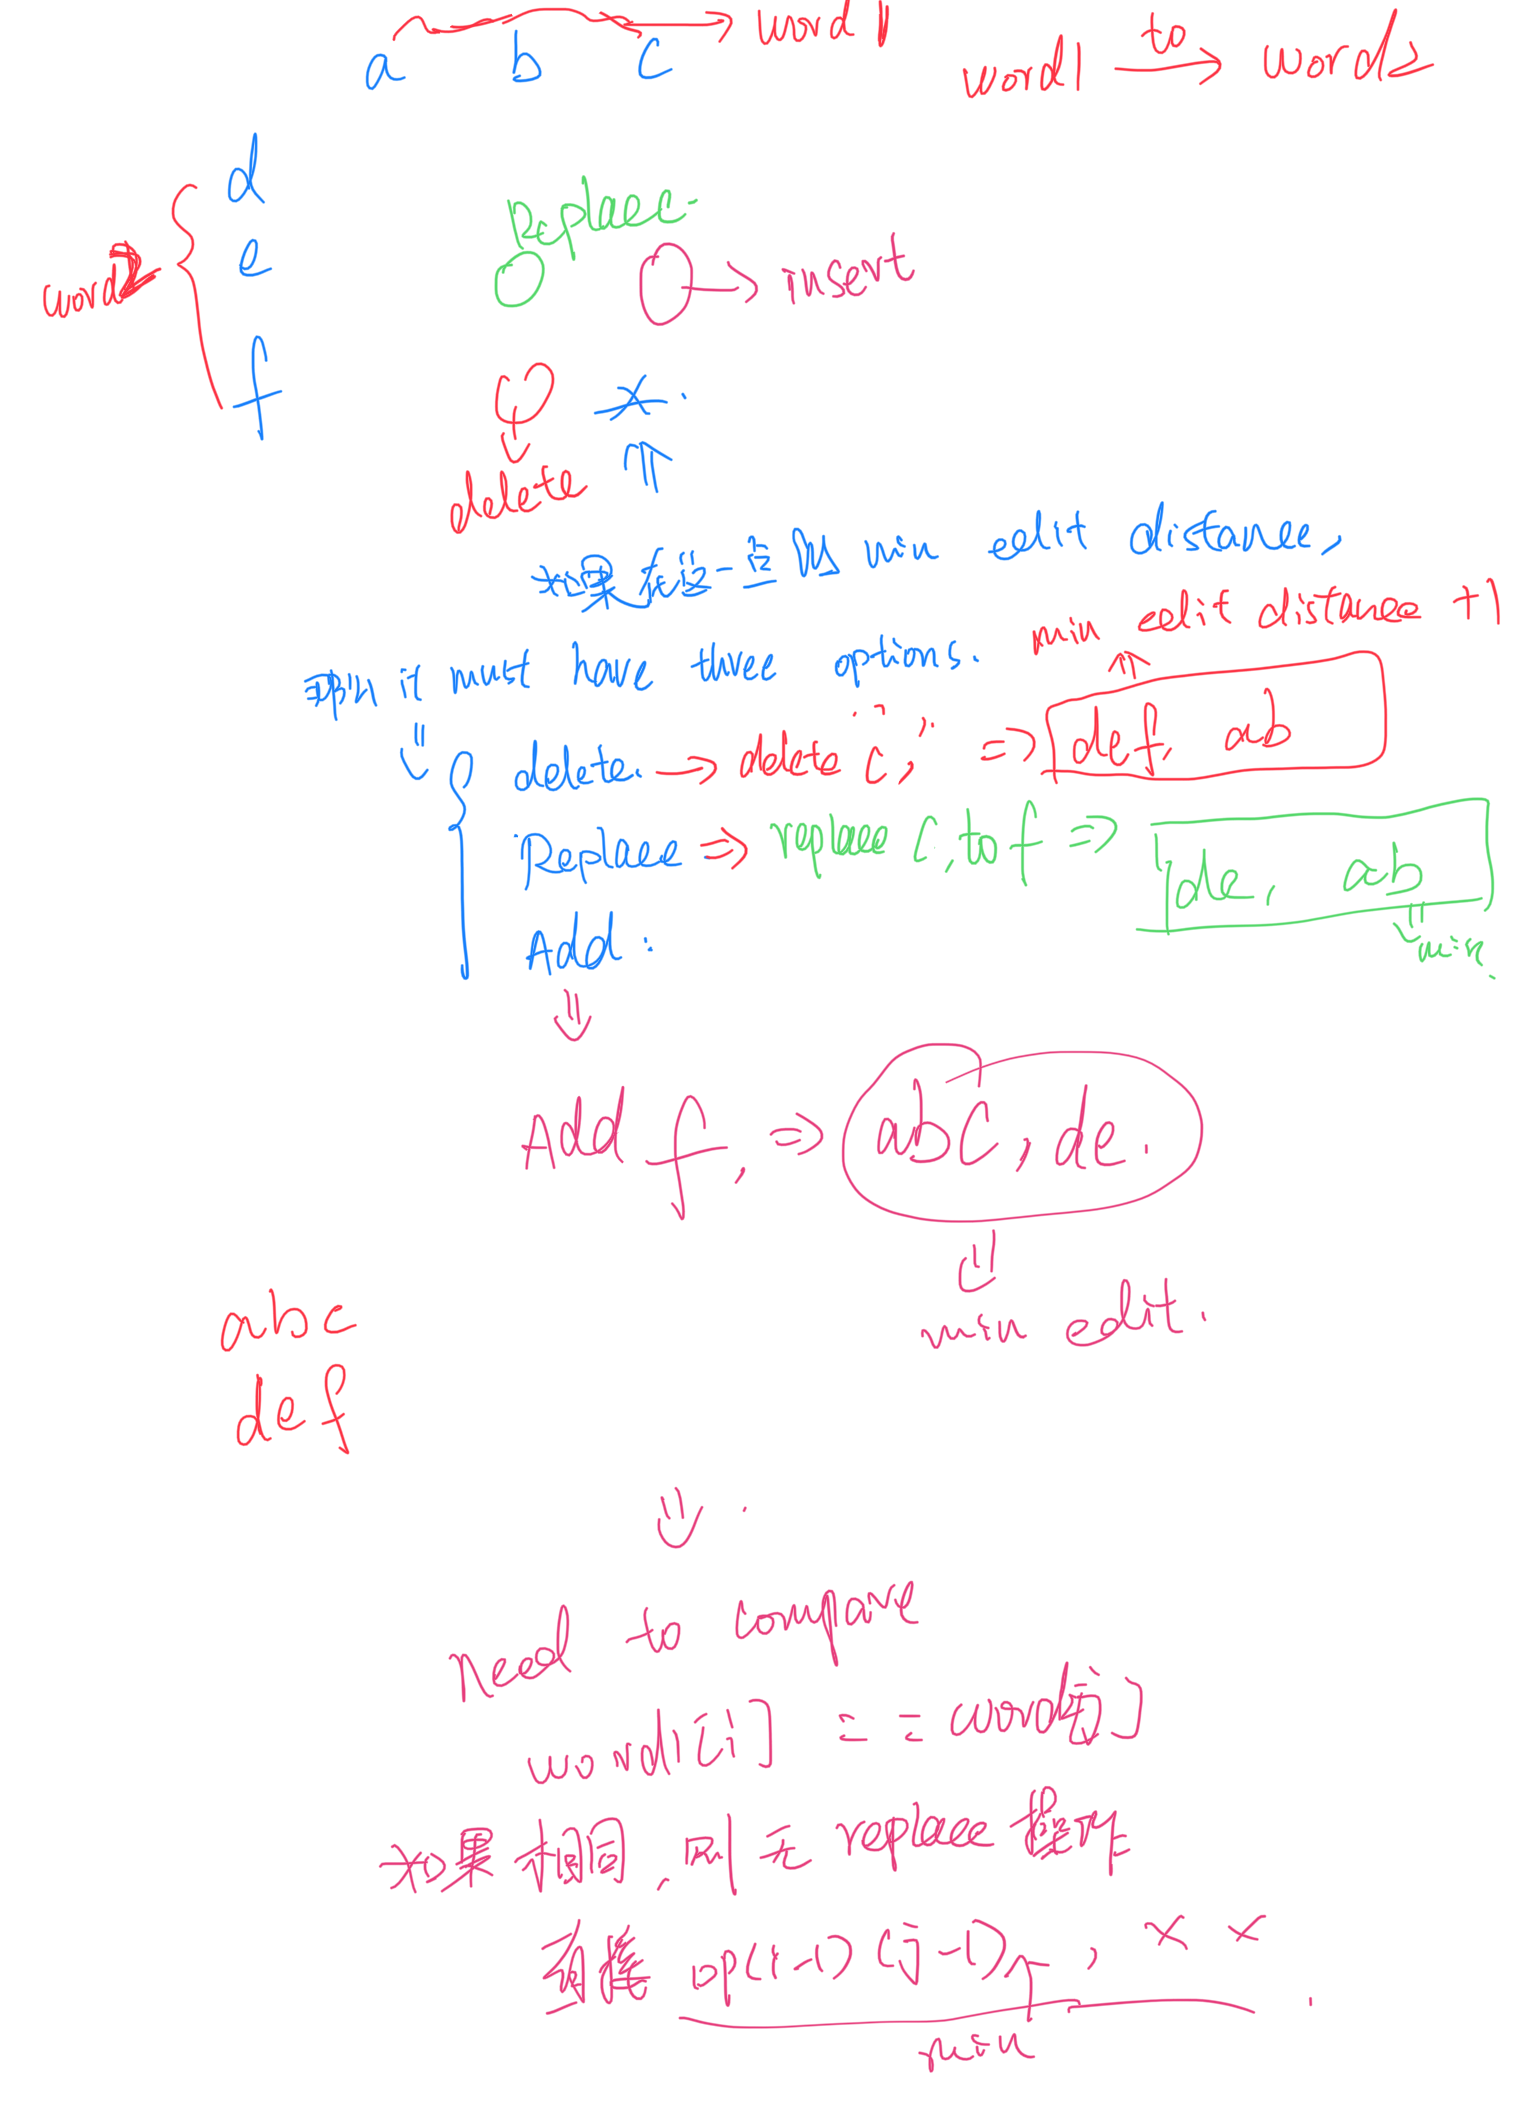 a b c → word1
word1 to → word2
d
word2 e
f
Replace
insert
delete
如果在这一位做min edit distance,
那以 it must have three options.
min edit distance +1
delete. → delete "c", ⇒ def, ab
Replace ⇒ replace c, to f ⇒ de, ab
min.
Add:
Add f, ⇒ abc, de.
min edit.
abc
def
Need to compare
word1[i] == word2[j]
如果相同, 则无 replace 操作
直接 op(i-1)(j-1), × ×
min